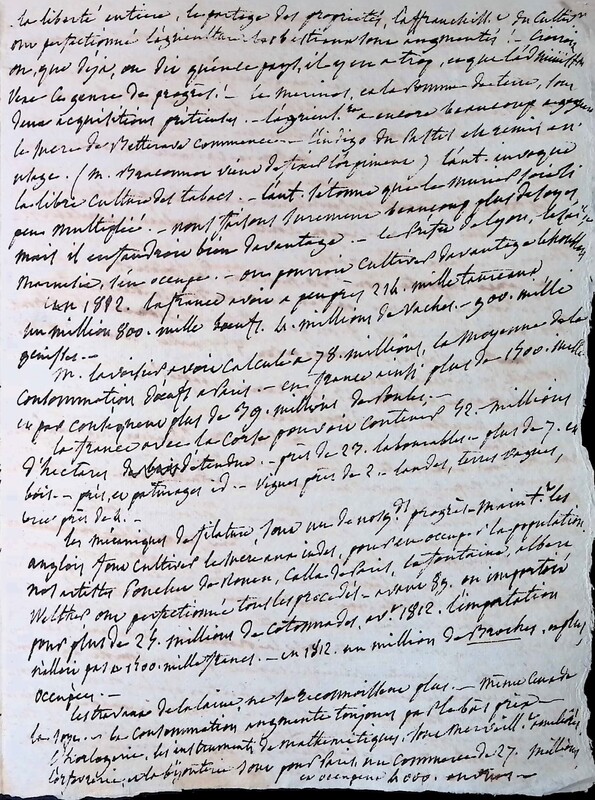 la liberté entière, le partage des propriétés, la franchise du cultiv
ont perfectionné l'agriculture les bestiaux sont augmentés !
on, que déjà, on dit qu'en ce pays, il y en a trop, et que l'administ
ce genre de progrès ! - le merinos, et la pomme de terre, sont
deux acquisitions précieuses. - l'agricult.re a encore beaucoup a gagner
le sucre de Betterave commence. - l'indigo du Pastel est remis en
usage. ( M. Braconnot vient de fixer l'orpiment ) l'aut. invoque
la libre culture des tabacs. - l'aut. s'étonne que le murier soit si
peu multiplié. - nous faisons surement beaucoup plus de soyes
mais il en faudroit bien davantage. - le Préfet de Lyon, le
Marseille, s'en occupe. - on pourroit cultiver davantage le houblon
en 1812. la france avoit a peu près 214. mille taureaux
un million 800. mille boeufs. 4. millions de Vaches. - 900. mille
genisses. -
M. lavoisier avoit calculé a 78. millions, la moyenne de la
consommation d'oeufs a Paris. - en france plus de 1900. mille
et par conséquent plus de 39. millions de Poules. -
la france avec la Corse pouvoit contenir 52. millions
d'hectares d'étendue. - près de 23. labourables. - plus de 7. en
bois. - prés, et paturages id. - vignes près de 2. - landes, terres vagues,
près de 4. -
les mécaniques de filature, sont un de nos gds progrès - maint.t les
anglois font cultiver le sucre aux indes, pour en occuper la population.
nos artistes Pouchet de Rouen, Calla de Paris, la fontaine, albert
Welther ont perfectionné tous les procédés - avant 89. on importoit
pour plus de 24. millions de cotonnades, av.t 1812. l'importation
n'alloit pas a 1300. mille francs. - en 1812. un million de Broches, et plus,
occupées. -
les travaux de la laine ne se reconnoissent plus. - même ceux de
la soye. et la consommation augmente toujours par le bas prix -
l'horlogerie, les instruments de mathématiques, sont
l'orfevrerie, et la bijouterie sont pour Paris, un commerce de 27. millions
et occupent 4000. ouvriers -